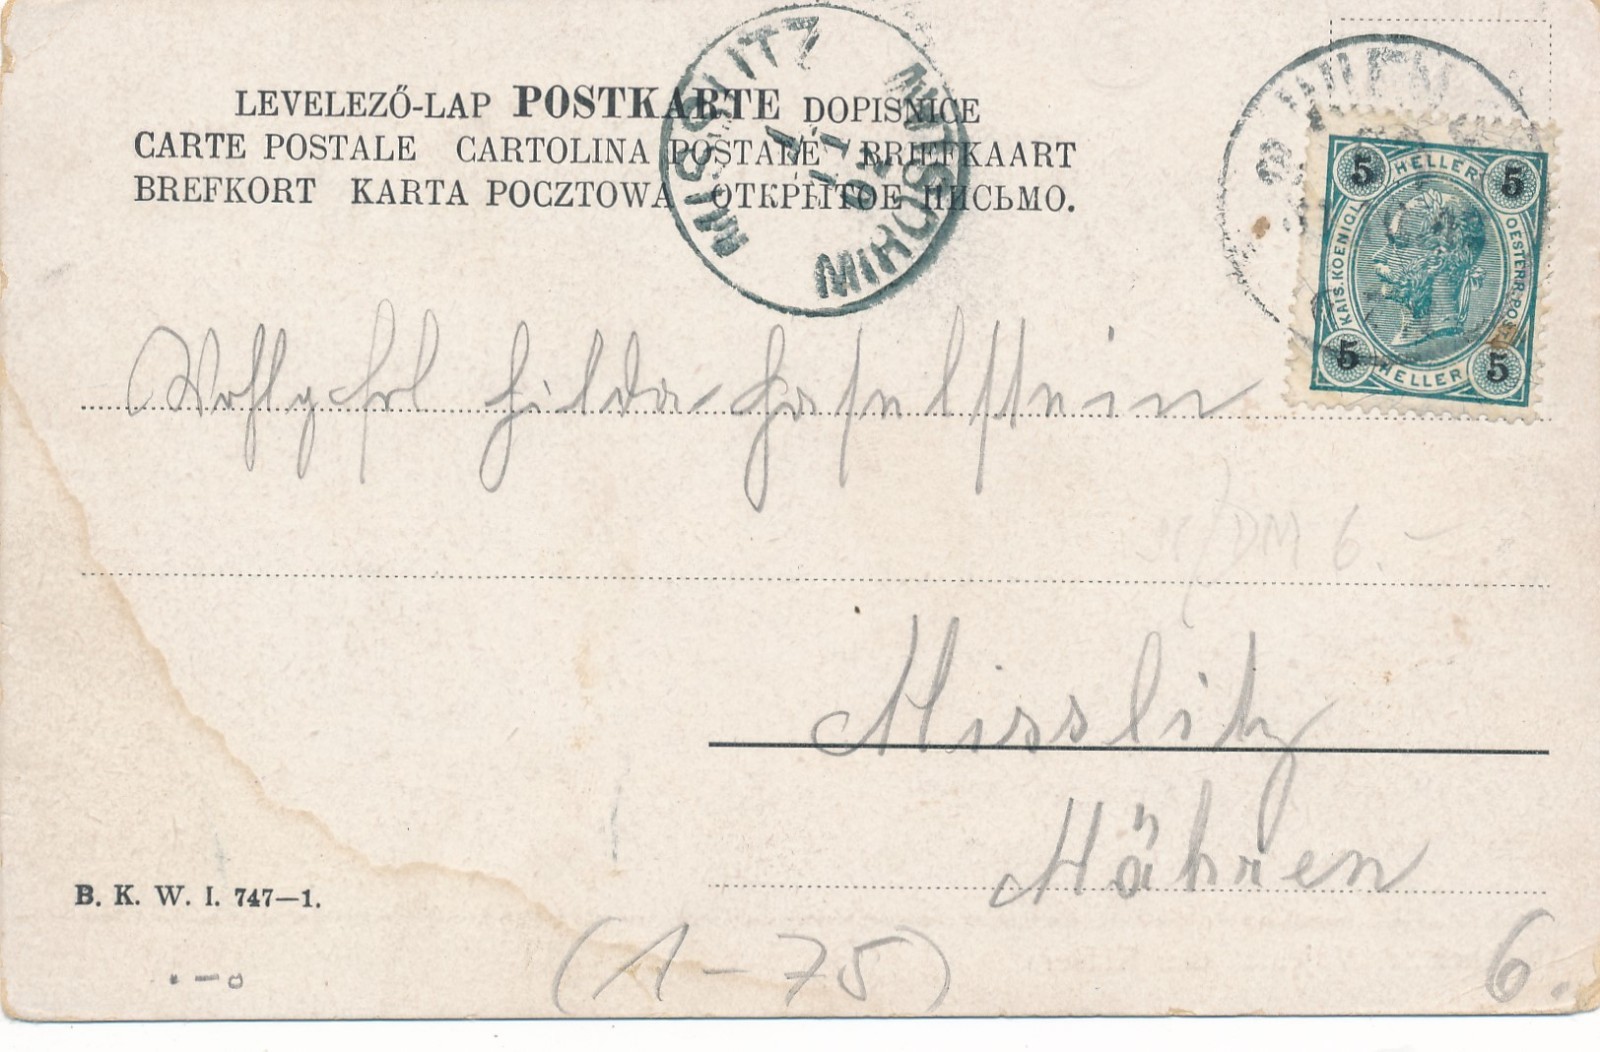 LEVELEZŐ-LAP POSTKARTE DOPISNICE
CARTE POSTALE CARTOLINA POSTALE BRIEFKAART
BREFKORT KARTA POCZTOWA ОТКРЫТОЕ ПИСЬМО.
MISSLITZ
MIROSLAV
WIEN
5 HELLER 5
KAIS. KOENIGL. OESTERR. POST
5 HELLER 5
Wohlgeb. Hilda Haselstein
DM 6.-
Misslitz
Mähren
B. K. W. I. 747—1.
(1-75)
6.